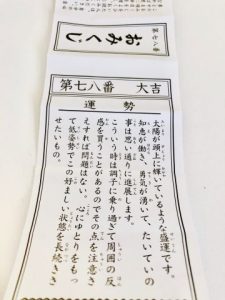 第七八番
おみくじ
第七八番　大吉
運勢
太陽が頭上に輝いているような盛運です。
知恵が働き、勇気が湧いて、たいていの
事は思い通りに進展します。
こういう時は調子に乗り過ぎて周囲の反
感を買うことがあるのでその点を注意さ
えすれば問題はない。心にゆとりをもっ
て低姿勢でこの好ましい状態を長続きさ
せたいもの。